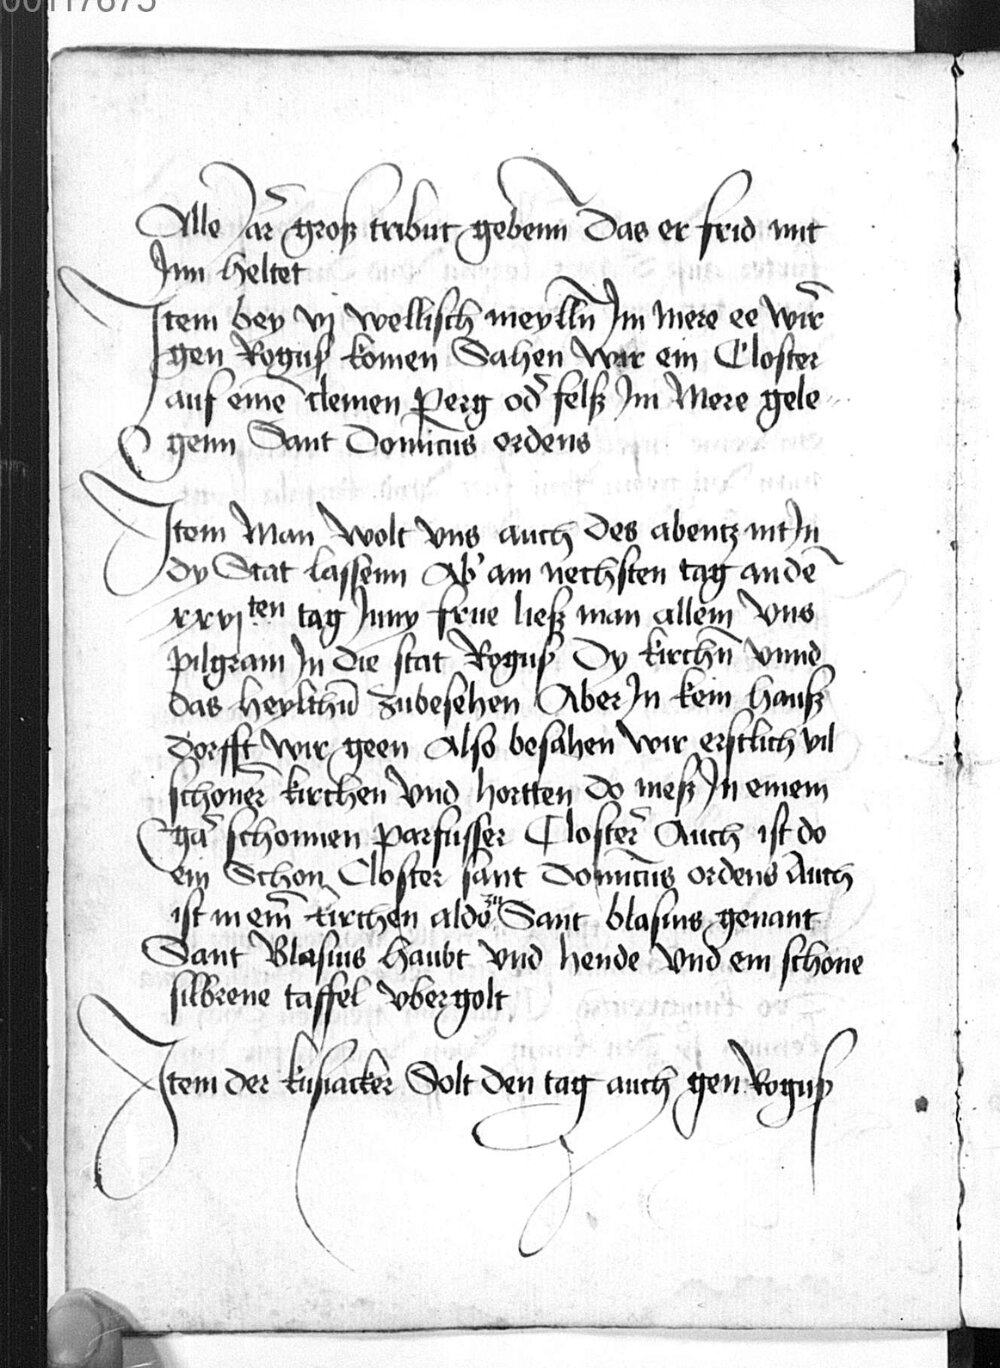 00117675
Alle Jar̃ groß tribut gebenn Das er frid mit
Jnn heltet
Jtem bey vj wellisch meylln̄ Jm mere ee wir̃
gen Roguß komen Sahen wir ein Closter
auf eine͂ clemen Perg od̕ felß Jm Mere gele
genn Sant Dominicus ordens
Jtem Man wolt vns auch des abentz nit Jn
dy Stat lassenn Ab̕ am nechsten tag an de͂
xxvj ten tag Juny frue ließ man allein Vns
pilgram Jn die stat Roguß Dy kirchn̄ vnnd
das heylthū zubesehen Aber Jn kein hauß
dorfft wir geen Also besahen wir erstlich vil
schoner̃ kirchen Vnd hortten do meß Jn einem
gar̃ schonnen parfusser Closter̃ Auch ist do
ein Schon Closter sant Dominicus ordens Auch
ist in eim̄ kirchen aldo zu Sant blasius genant
Sant Blasius haubt vnd hende vnd ein schone
silbrene taffel vbergolt
Jtem der kusiacker Solt den tag auch gen Roguß